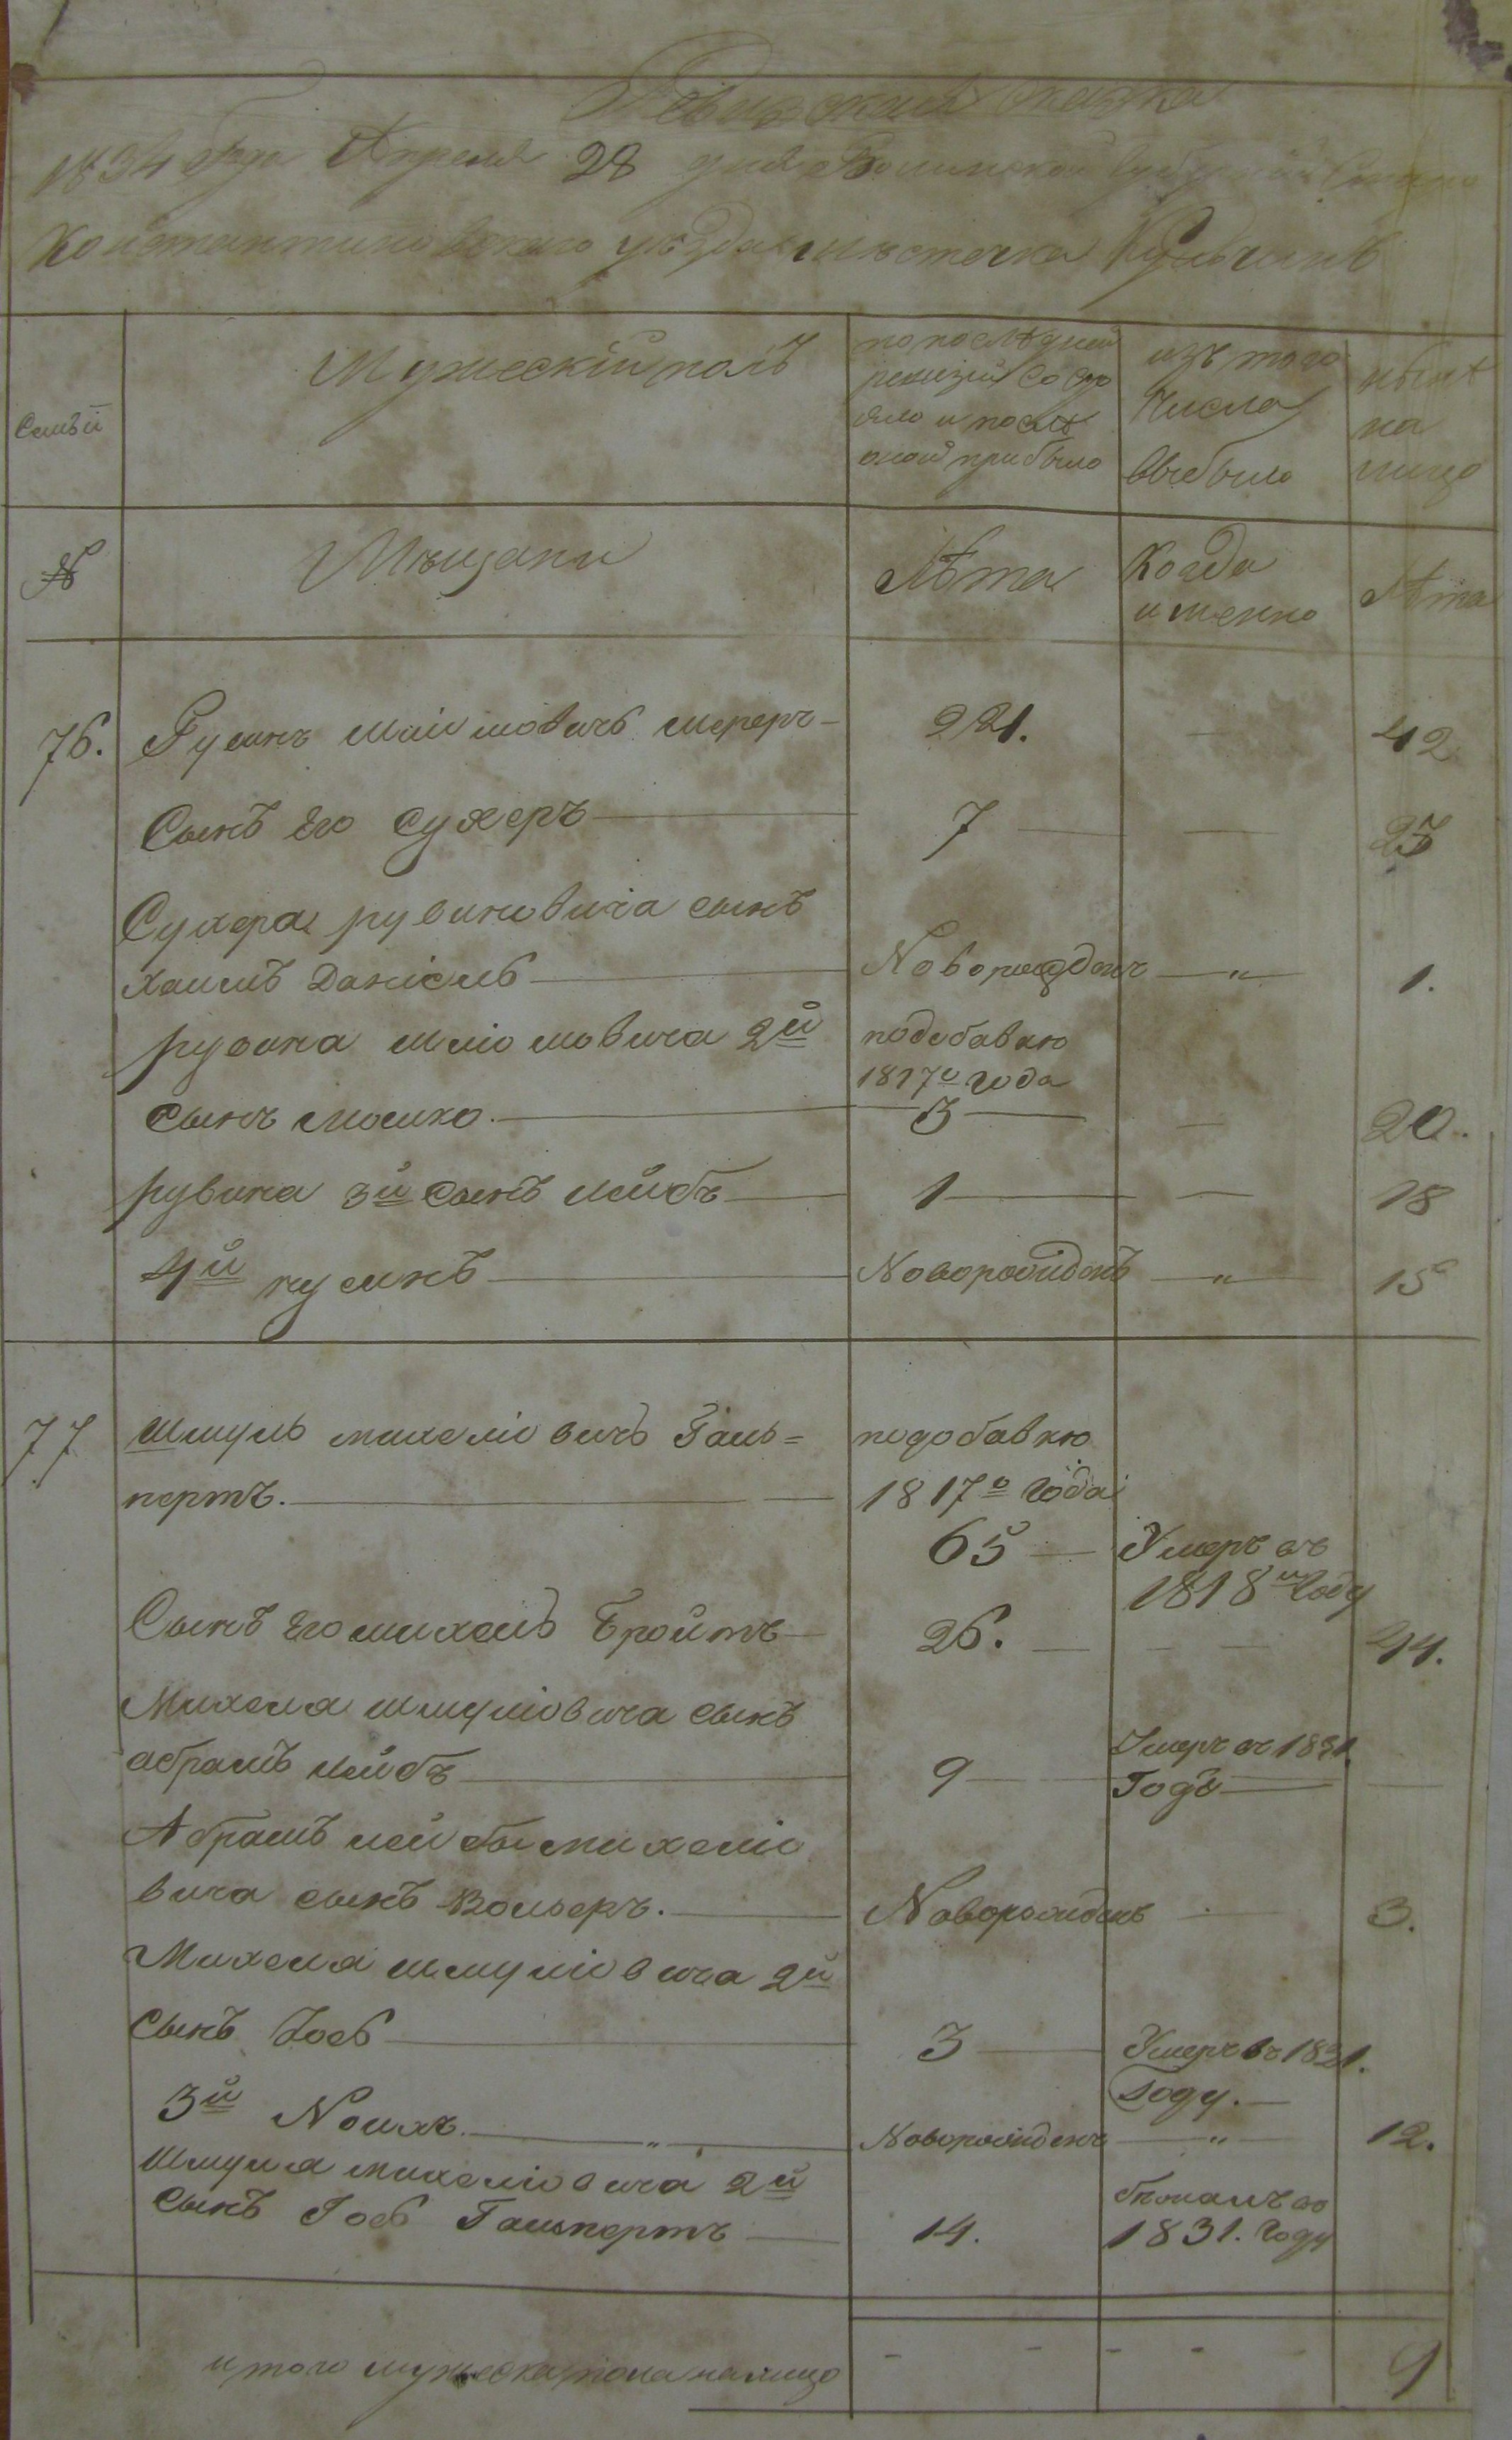 Ревизская сказка
1834 Года Апреля 28 дня Волынской Губернии Старо
Константиновского уѣзда мѣстечка Кульчинъ
Семьи
Мужескій полъ
по послѣдней
ревизіи состо
яло и послѣ
оной прибыло
изъ того
Числа
выбыло
нынѣ
на
лицо
№
Мѣщане
Лѣта
Когда
именно
Лѣта
76. 221. — 42
Сынъ Его Сухеръ — 7 — — 23
Сухера рувиновича сынъ
Хаимъ Даніель — Новорожденъ — „ — 1.
рувина 2й
подобавкю
1817о года
сынъ Мошко. — 3 — — 20.
рувина 3й сынъ лейбъ — 1 — — 18
4й — Новорожденъ — „ — 15
77 Шмуль михеліовичъ Галь=
пертъ. — —
подобавкю
1817о Года
65 — Умеръ въ
1818м Году
Сынъ Его михель Бройтъ — 26. — — — 44.
Михеля шмуліовича сынъ
абрамъ лейбъ — 9 — Умеръ въ 1831
Годѣ —
Абрамъ лейбы михеліо
вича сынъ Вольверъ. — Новорожденъ — 3.
Михеля шмуліовича 2й
сынъ Іосъ — 3 — Умеръ въ 1831.
Году. —
3й — „ — Новорожденъ — „ — 12.
Шмуля михеліовича 2й
сынъ Іосъ Гальпертъ — 14. во
1831. Году
итого мужеска пола налицо - - - - 9